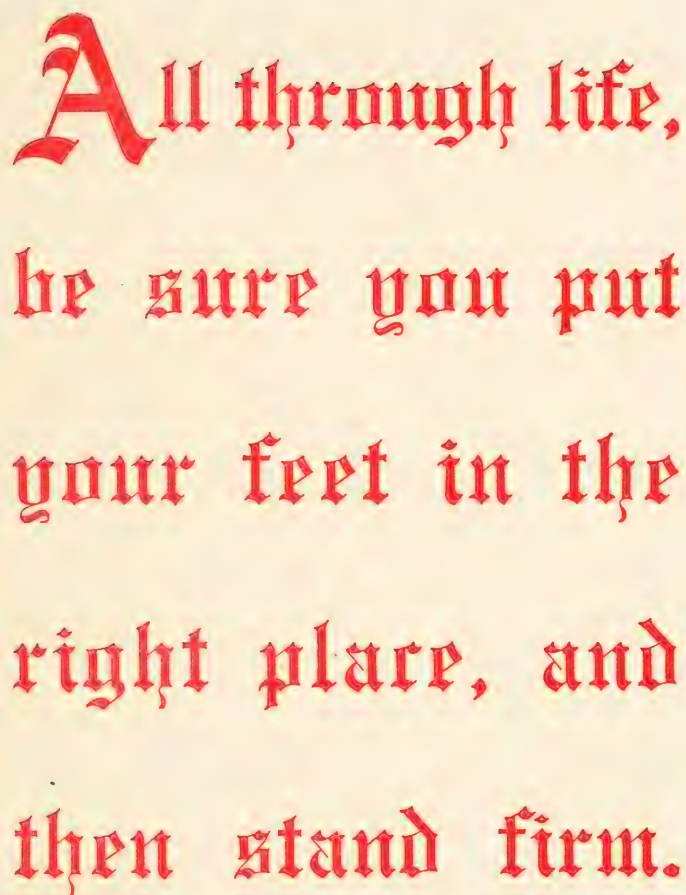 All through life,
be sure you put
your feet in the
right place, and
then stand firm.